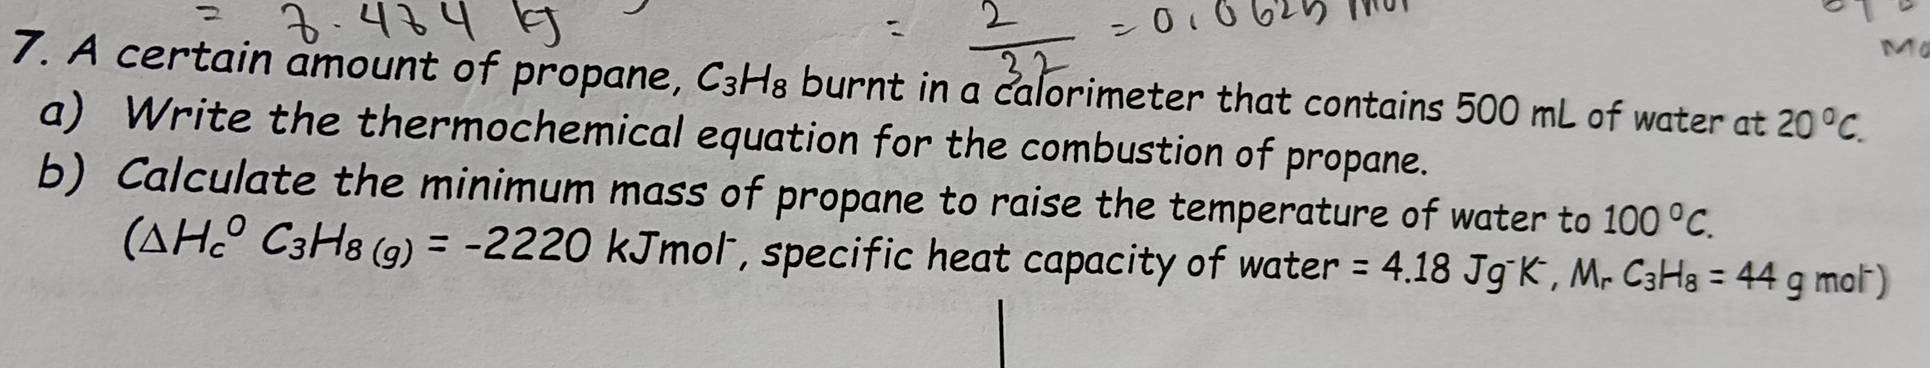 = 7.474 kJ
= 2/32 = 0.0625 mol
7. A certain amount of propane, C₃H₈ burnt in a calorimeter that contains 500 mL of water at 20 °C.
a) Write the thermochemical equation for the combustion of propane.
b) Calculate the minimum mass of propane to raise the temperature of water to 100 °C.
(ΔHc° C₃H₈ (g) = -2220 kJmol⁻, specific heat capacity of water = 4.18 Jg⁻K⁻, Mr C₃H₈ = 44 g mol⁻)